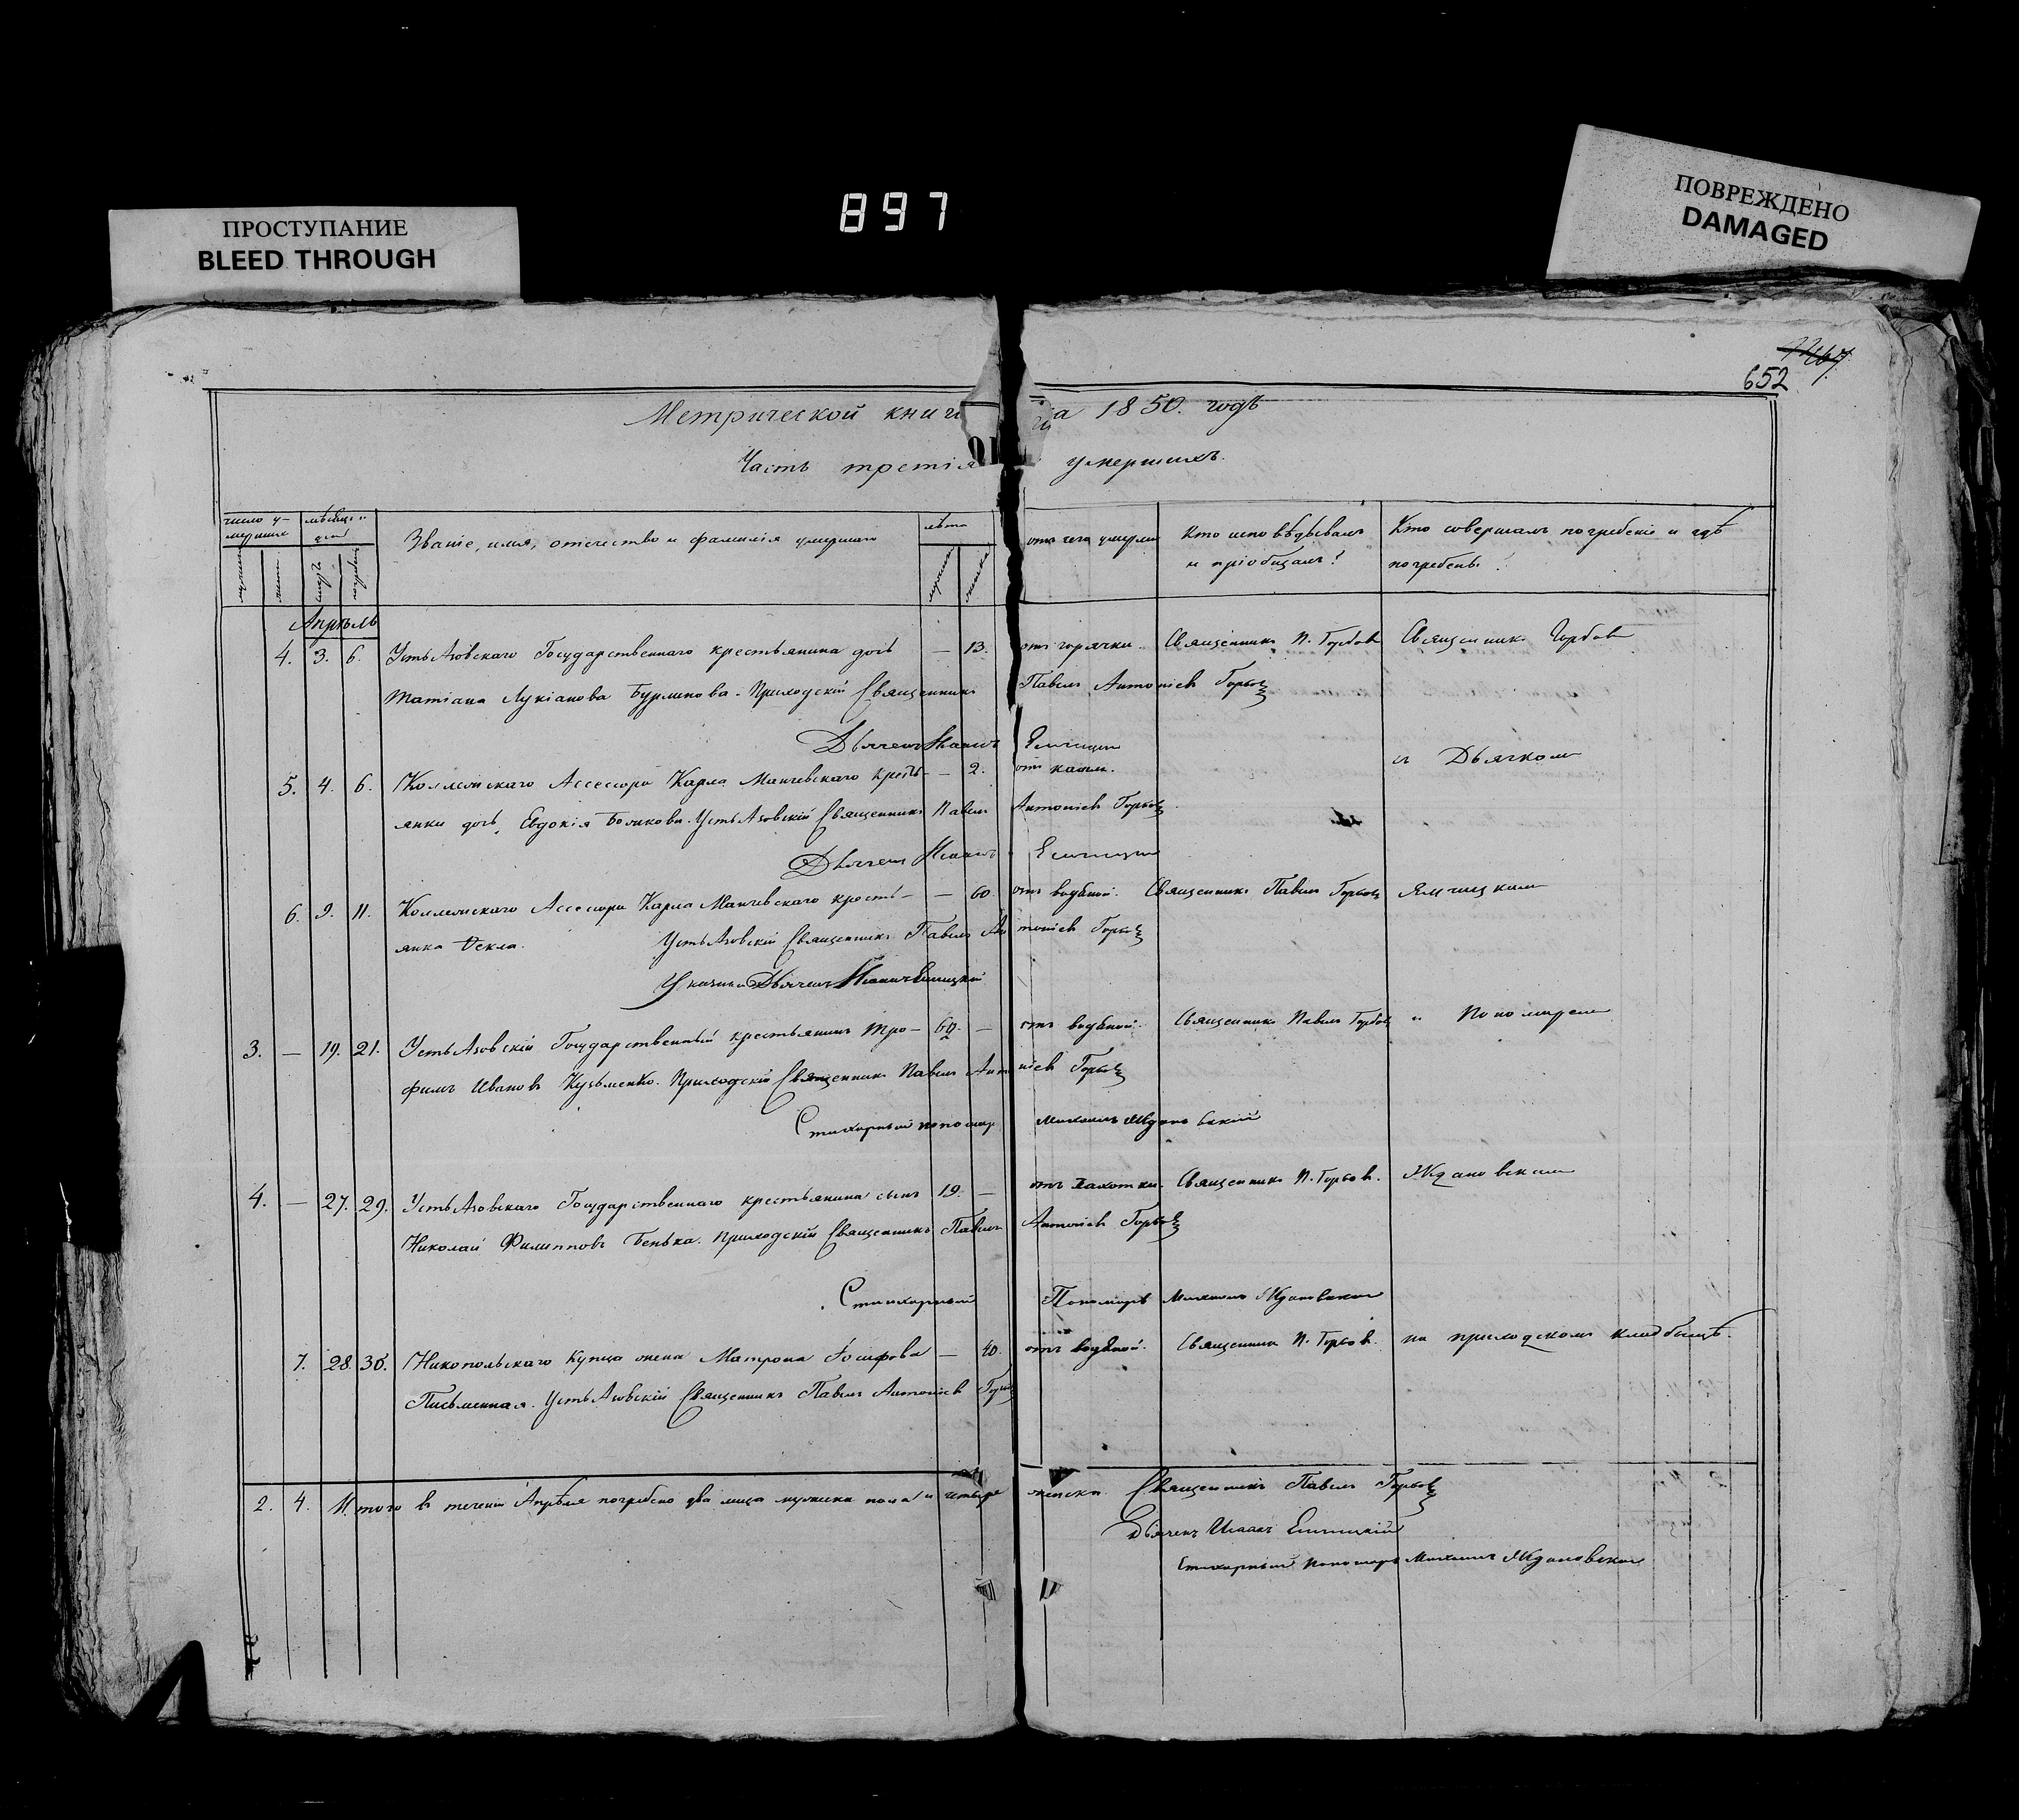 897
ПРОСТУПАНИЕ
BLEED THROUGH
ПОВРЕЖДЕНО
DAMAGED
652
Метрической книги на 1850. годъ
Часть третія умершихъ.
число у-мершихъ мѣсяцъ и лѣта
Званіе, имя, отечество и фамилія умершаго
отъ чего умерли
Кто исповѣдывалъ и пріобщалъ?
Кто совершалъ погребеніе и гдѣ погребены?
Апрѣль
4. 3. 6. Усть Азовскаго Государственнаго крестьянина дочь — 13. отъ горячки. Священникъ П. Горбовъ Священникъ Горбовъ
Татіана Лукіанова Бурлакова. Приходскій Священникъ Павелъ Антоніевъ Горбов
Дьячекъ Исаакъ
5. 4. 6. Коллежскаго Ассесора Карла Манчевскаго кресть- — 2. отъ кашля. съ Дьячкомъ
янки дочь Евдокія. Усть Азовскій Священникъ Павелъ Антоніевъ Горбов
Дьячекъ Исаакъ
6. 9. 11. Коллежскаго Ассесора Карла Манчевскаго кресть- — 60. отъ водяной. Священникъ Павелъ Горбов
янка Ѳекла. Усть Азовскій Священникъ Павелъ Антоніевъ Горбов
Дьячекъ Исаакъ Елицкій
3. — 19. 21. Усть Азовскій Государственный крестьянинъ Тро- — отъ водяной. Священникъ Павелъ Горбов и Пономаремъ
фимъ Ивановъ Кузьменко. Приходскій Священникъ Павелъ Антоніевъ Горбов
Стихарный пономар Михаилъ Ждановскій
4. — 27. 29. Усть Азовскаго Государственнаго крестьянина сынъ 19. — отъ чахотки. Священникъ П. Горбовъ. Ждановскимъ
Николай Филипповъ Бенька. Приходскій Священникъ Павелъ Антоніевъ Горбов
Стихарный Пономарь Михаилъ Ждановскій
7. 28 30. Никопольскаго купца жена Матрона Іосифова — 40. отъ водяной. Священникъ П. Горбовъ. на приходскомъ кладбищѣ.
Письменная. Усть Азовскій Священникъ Павелъ Антоніевъ Горбов
2. 4. Итого въ теченіи Апрѣля погребено два лица мужеска пола и четыре женска Священникъ Павелъ Горбов
Дьячекъ Исаакъ Елицкій
Стихарный пономарь Михаилъ Ждановскій